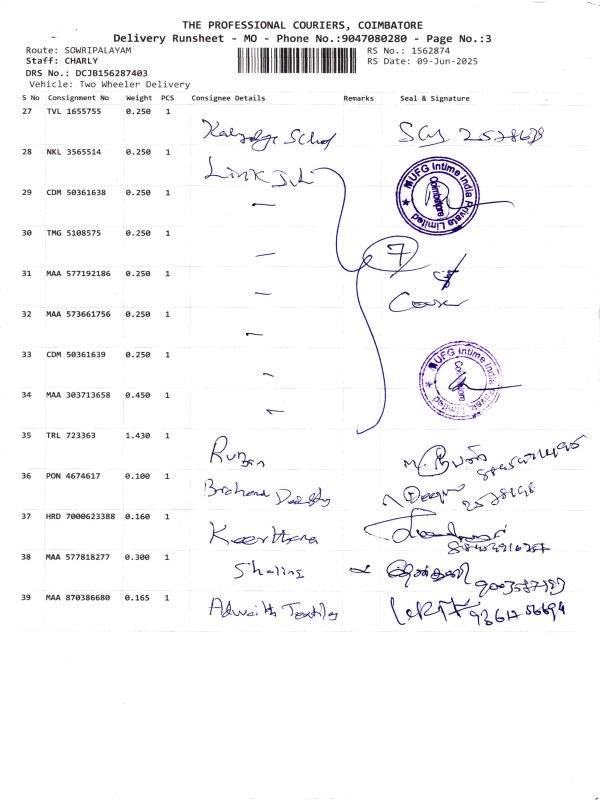 THE PROFESSIONAL COURIERS, COIMBATORE
Delivery Runsheet - MO - Phone No.:9047080280 - Page No.:3
Route: SOWRIPALAYAM RS No.: 1562874
Staff: CHARLY RS Date: 09-Jun-2025
DRS No.: DCJB156287403
Vehicle: Two Wheeler Delivery
S No Consignment No Weight PCS Consignee Details Remarks Seal & Signature
27 TVL 1655755 0.250 1
28 NKL 3565514 0.250 1 Link
MUFG Intime India Private Limited Coimbatore
29 CDM 50361638 0.250 1 —
30 TMG 5108575 0.250 1 — 7
31 MAA 577192186 0.250 1 —
32 MAA 573661756 0.250 1 —
33 CDM 50361639 0.250 1 —
MUFG Intime India Private Limited Coimbatore
34 MAA 303713658 0.450 1 —
35 TRL 723363 1.430 1
36 PON 4674617 0.100 1
37 HRD 7000623388 0.160 1 Keerthana
38 MAA 577818277 0.300 1 Shalini
39 MAA 870386680 0.165 1 Adwaith Textiles